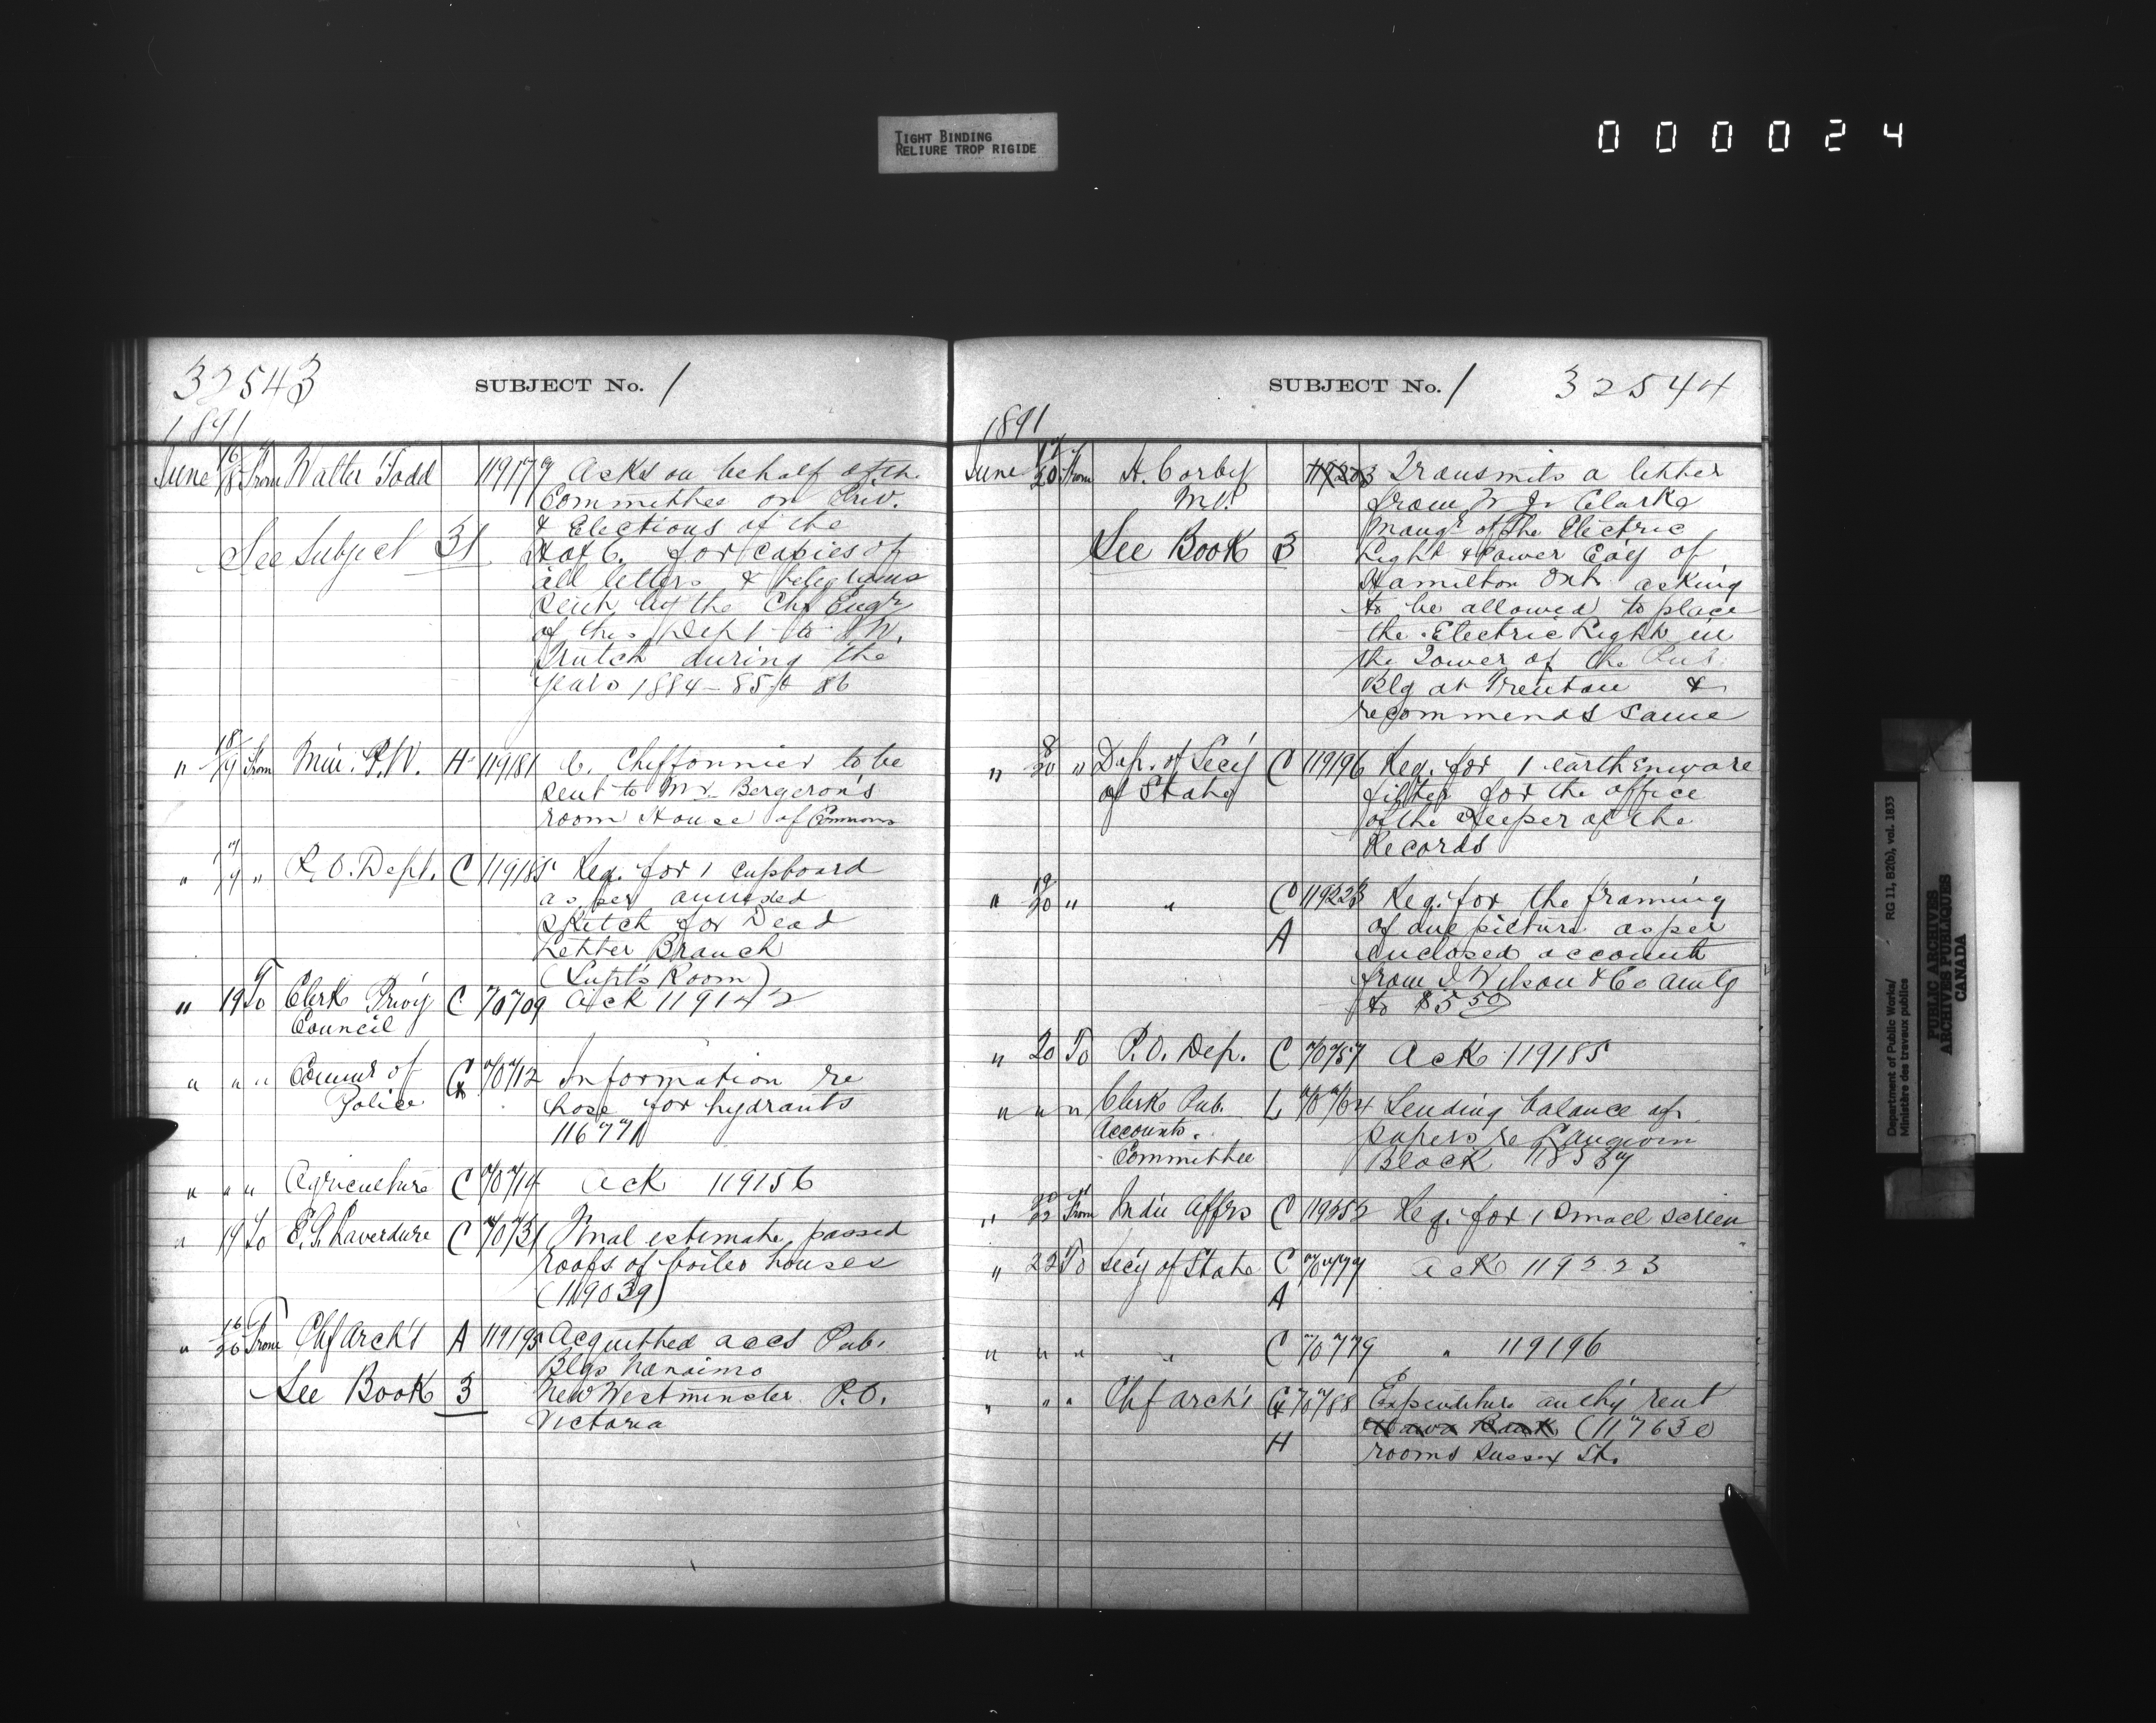 TIGHT BINDING
RELIURE TROP RIGIDE
000024
32543 SUBJECT No. 1
1891
June 16/18 From Walter Todd 119179 Asks on behalf of the
Committee on Priv.
& Elections of the
See Subject 31 H of C. for copies of
all letters & telegrams
sent by the Chf Engr
of this Dept to J.W.
Trutch during the
years 1884-85 & 86
" 18/19 From Min. P.W. H 119181 C. Cheffonnier to be
sent to Mr. Bergeron's
room House of Commons
" 17/19 " P.O. Dept. C 119185 Req. for 1 cupboard
as per annexed
sketch for Dead
Letter Branch
(Supt's Room)
" 19 To Clerk Privy C 70709 Ack 119142
Council
" " " Commr of G 70712 Information re
Police hose for hydrants
116771
" " " Agriculture C 70714 Ack 119156
" 19 To E.S. Laverdure C 70731 Final estimate passed
roofs of boiler houses
(119039)
" 16/20 From Chf Arch't A 119195 Acquitted accs Pub.
Blgs Nanaimo
See Book 3 New Westminster P.O.
Victoria
SUBJECT No. 1 32544
1891
June 17/20 From H. Corby Transmits a letter
M.P. from W J. Clarke
Mangr of the Electric
See Book 3 Light & Power Co'y of
Hamilton Ont. asking
to be allowed to place
the Electric Light in
the Tower of the Pub.
Blg at Trenton &
recommends same
" 8/20 " Dep. of Sec'y C 119196 Req. for 1 earthenware
of State filter for the office
of the Keeper of the
Records
" 19/20 " " C 119223 Req. for the framing
A of one picture as per
enclosed account
from J Wilson & Co amtg
to $5.50
" 20 To P.O. Dep. C 70757 Ack 119185
" " " Clerk Pub. L 70764 Sending balance of
Accounts. papers re Langevin
Committee Block
" 20/22 From Indn Affrs C 119252 Req. for 1 small screen
" 22 To Secy of State C 70777 Ack 119223
A
" " " " C 70779 " 119196
" " " Chf Arch't G 70788 Expenditure auth'y rent
(117630
H rooms Sussex St.
Department of Public Works/ RG 11, B2(b), vol. 1833
Ministère des travaux publics
PUBLIC ARCHIVES
ARCHIVES PUBLIQUES
CANADA